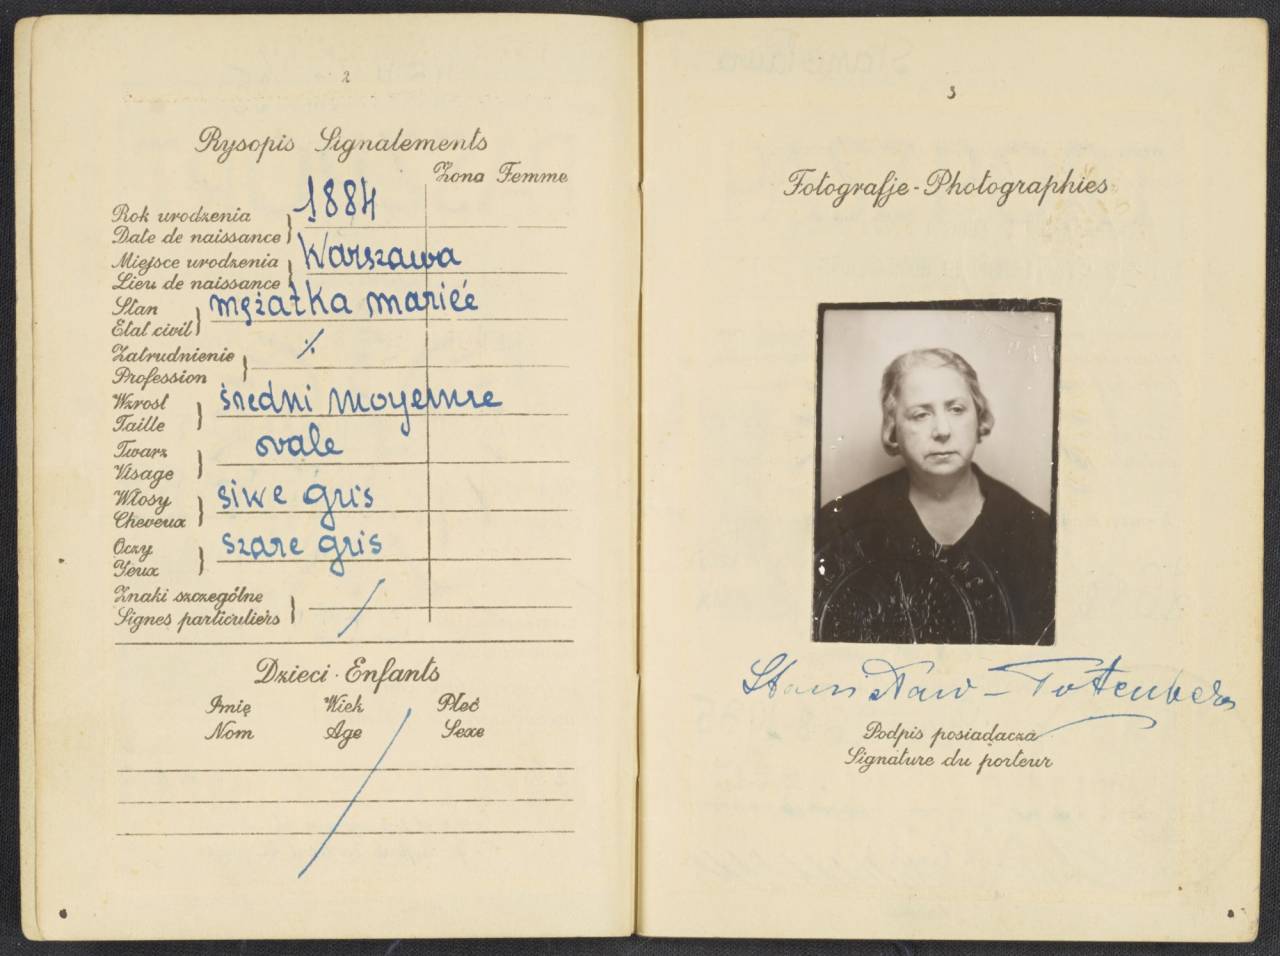 2
Rysopis Signalements
Żona Femme
Rok urodzenia
Date de naissance
1884
Miejsce urodzenia
Lieu de naissance
Warszawa
Stan
Etat civil
mężatka mariée
Zatrudnienie
Profession
./.
Wzrost
Taille
średni moyenne
Twarz
Visage
ovale
Włosy
Cheveux
siwe gris
Oczy
Yeux
szare gris
Znaki szczególne
Signes particuliers
Dzieci - Enfants
Imię Wiek Płeć
Nom Age Sexe
3
Fotografje - Photographies
Podpis posiadacza
Signature du porteur